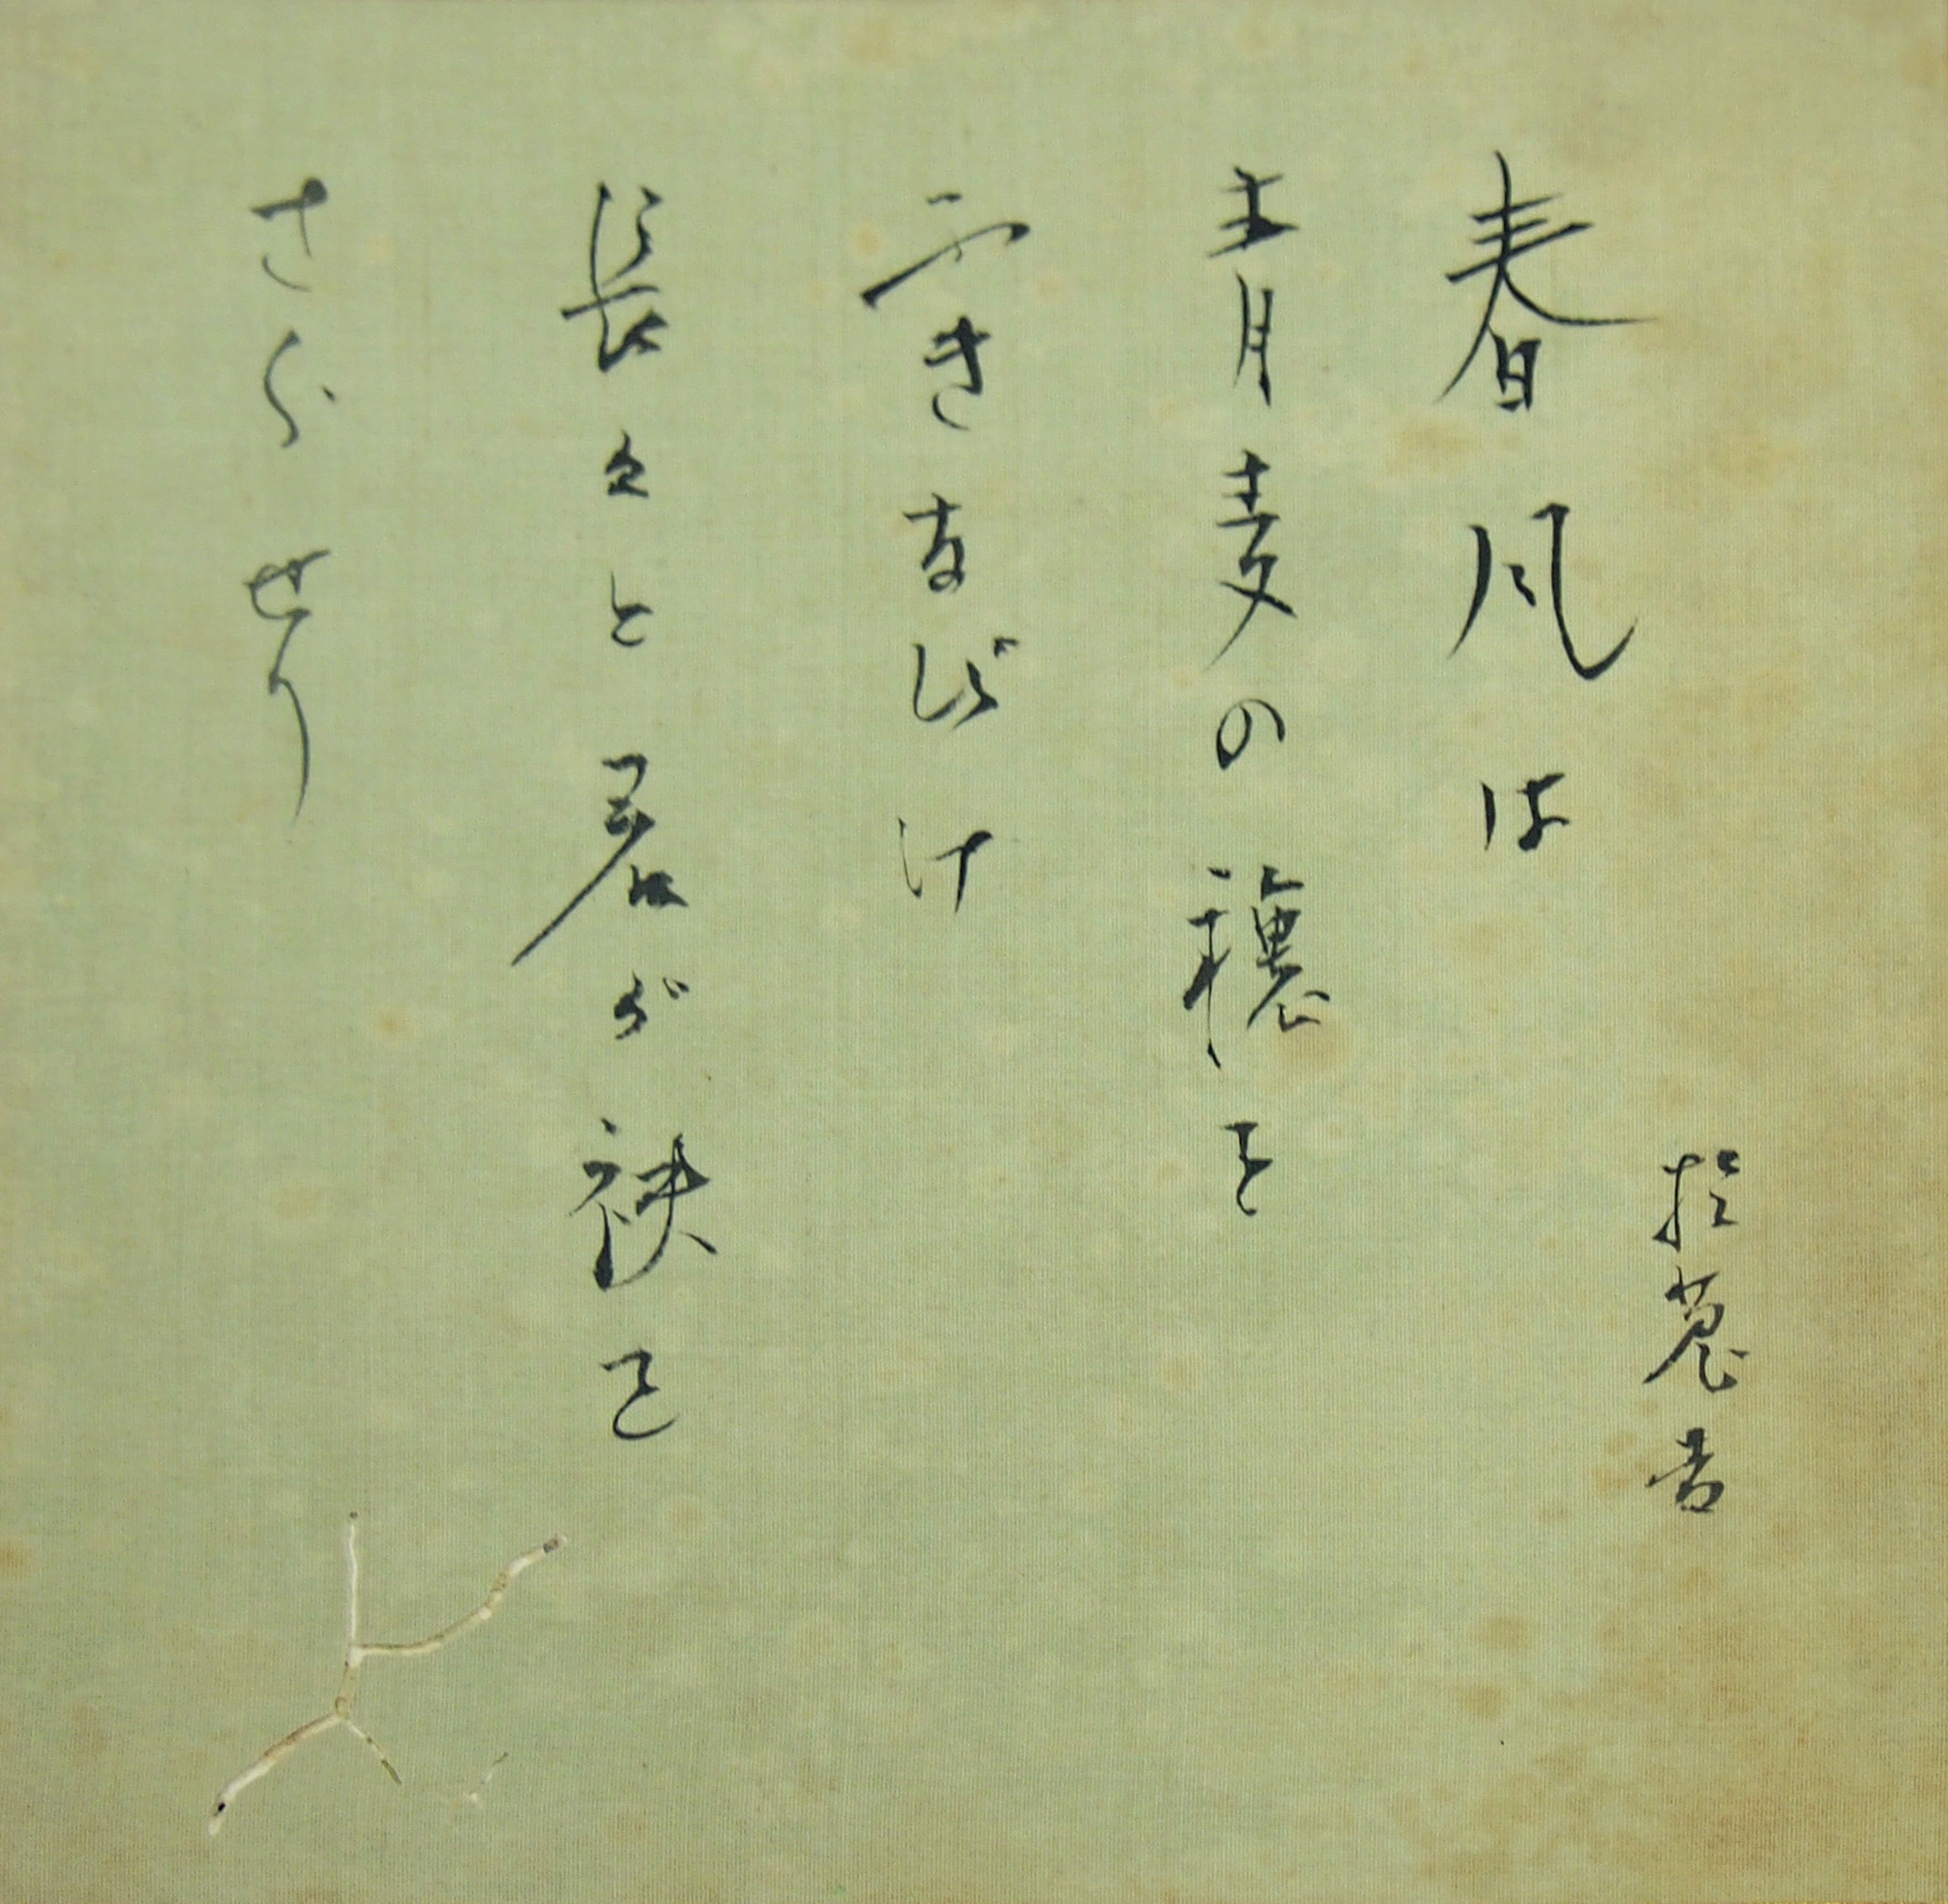 於菟吉
春風は
青麦の穗を
ふきなびけ
長々と君が袂を
さらせり